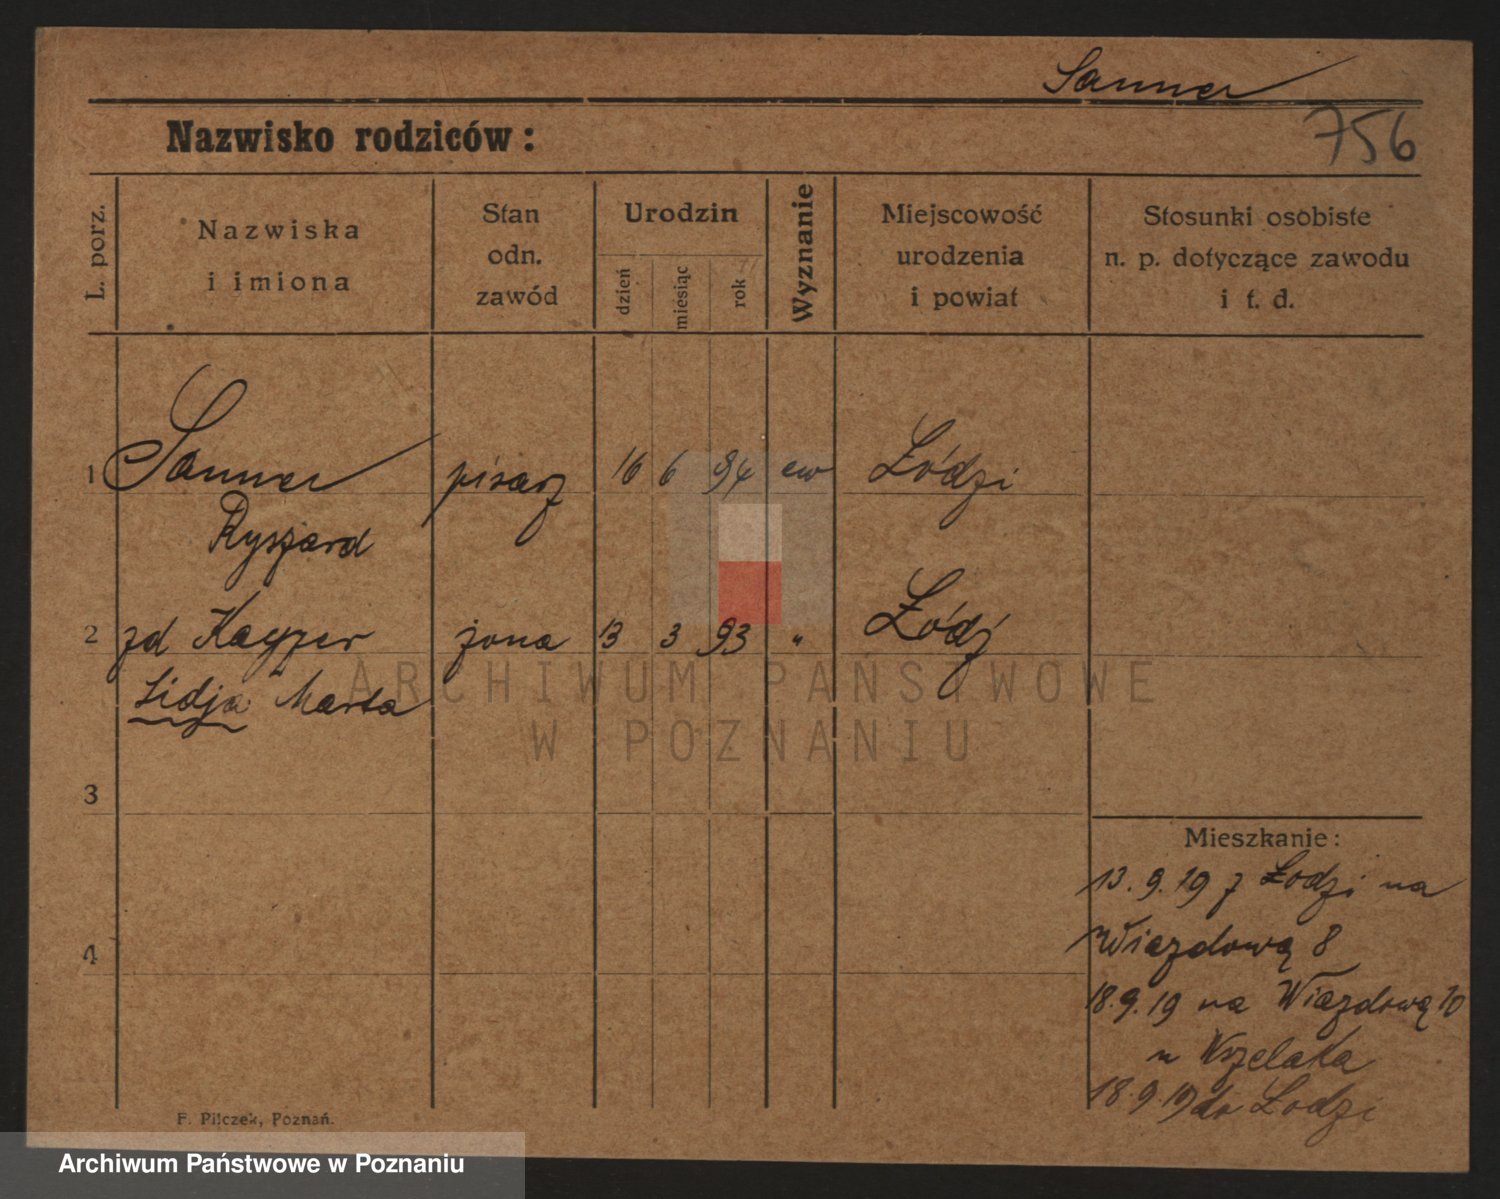 Sanner
Nazwisko rodziców:
756
L. porz.
Nazwiska
i imiona
Stan
odn.
zawód
Urodzin
dzień
miesiąc
rok
Wyznanie
Miejscowość
urodzenia
i powiat
Stosunki osobiste
n. p. dotyczące zawodu
i t. d.
1 Sanner pisarz 16 6 94 ew Łódzi
Ryszard
2 zd Kayzer żona 13 3 93 " Łódź
Lidja Marta
3
4
Mieszkanie:
13.9.19 z Łodzi na
Wiazdową 8
18.9.19 na Wiazdową 10
u Wszelaka
18.9.19 do Łodzi
F. Pilczek, Poznań.
ARCHIWUM PAŃSTWOWE
W POZNANIU
Archiwum Państwowe w Poznaniu